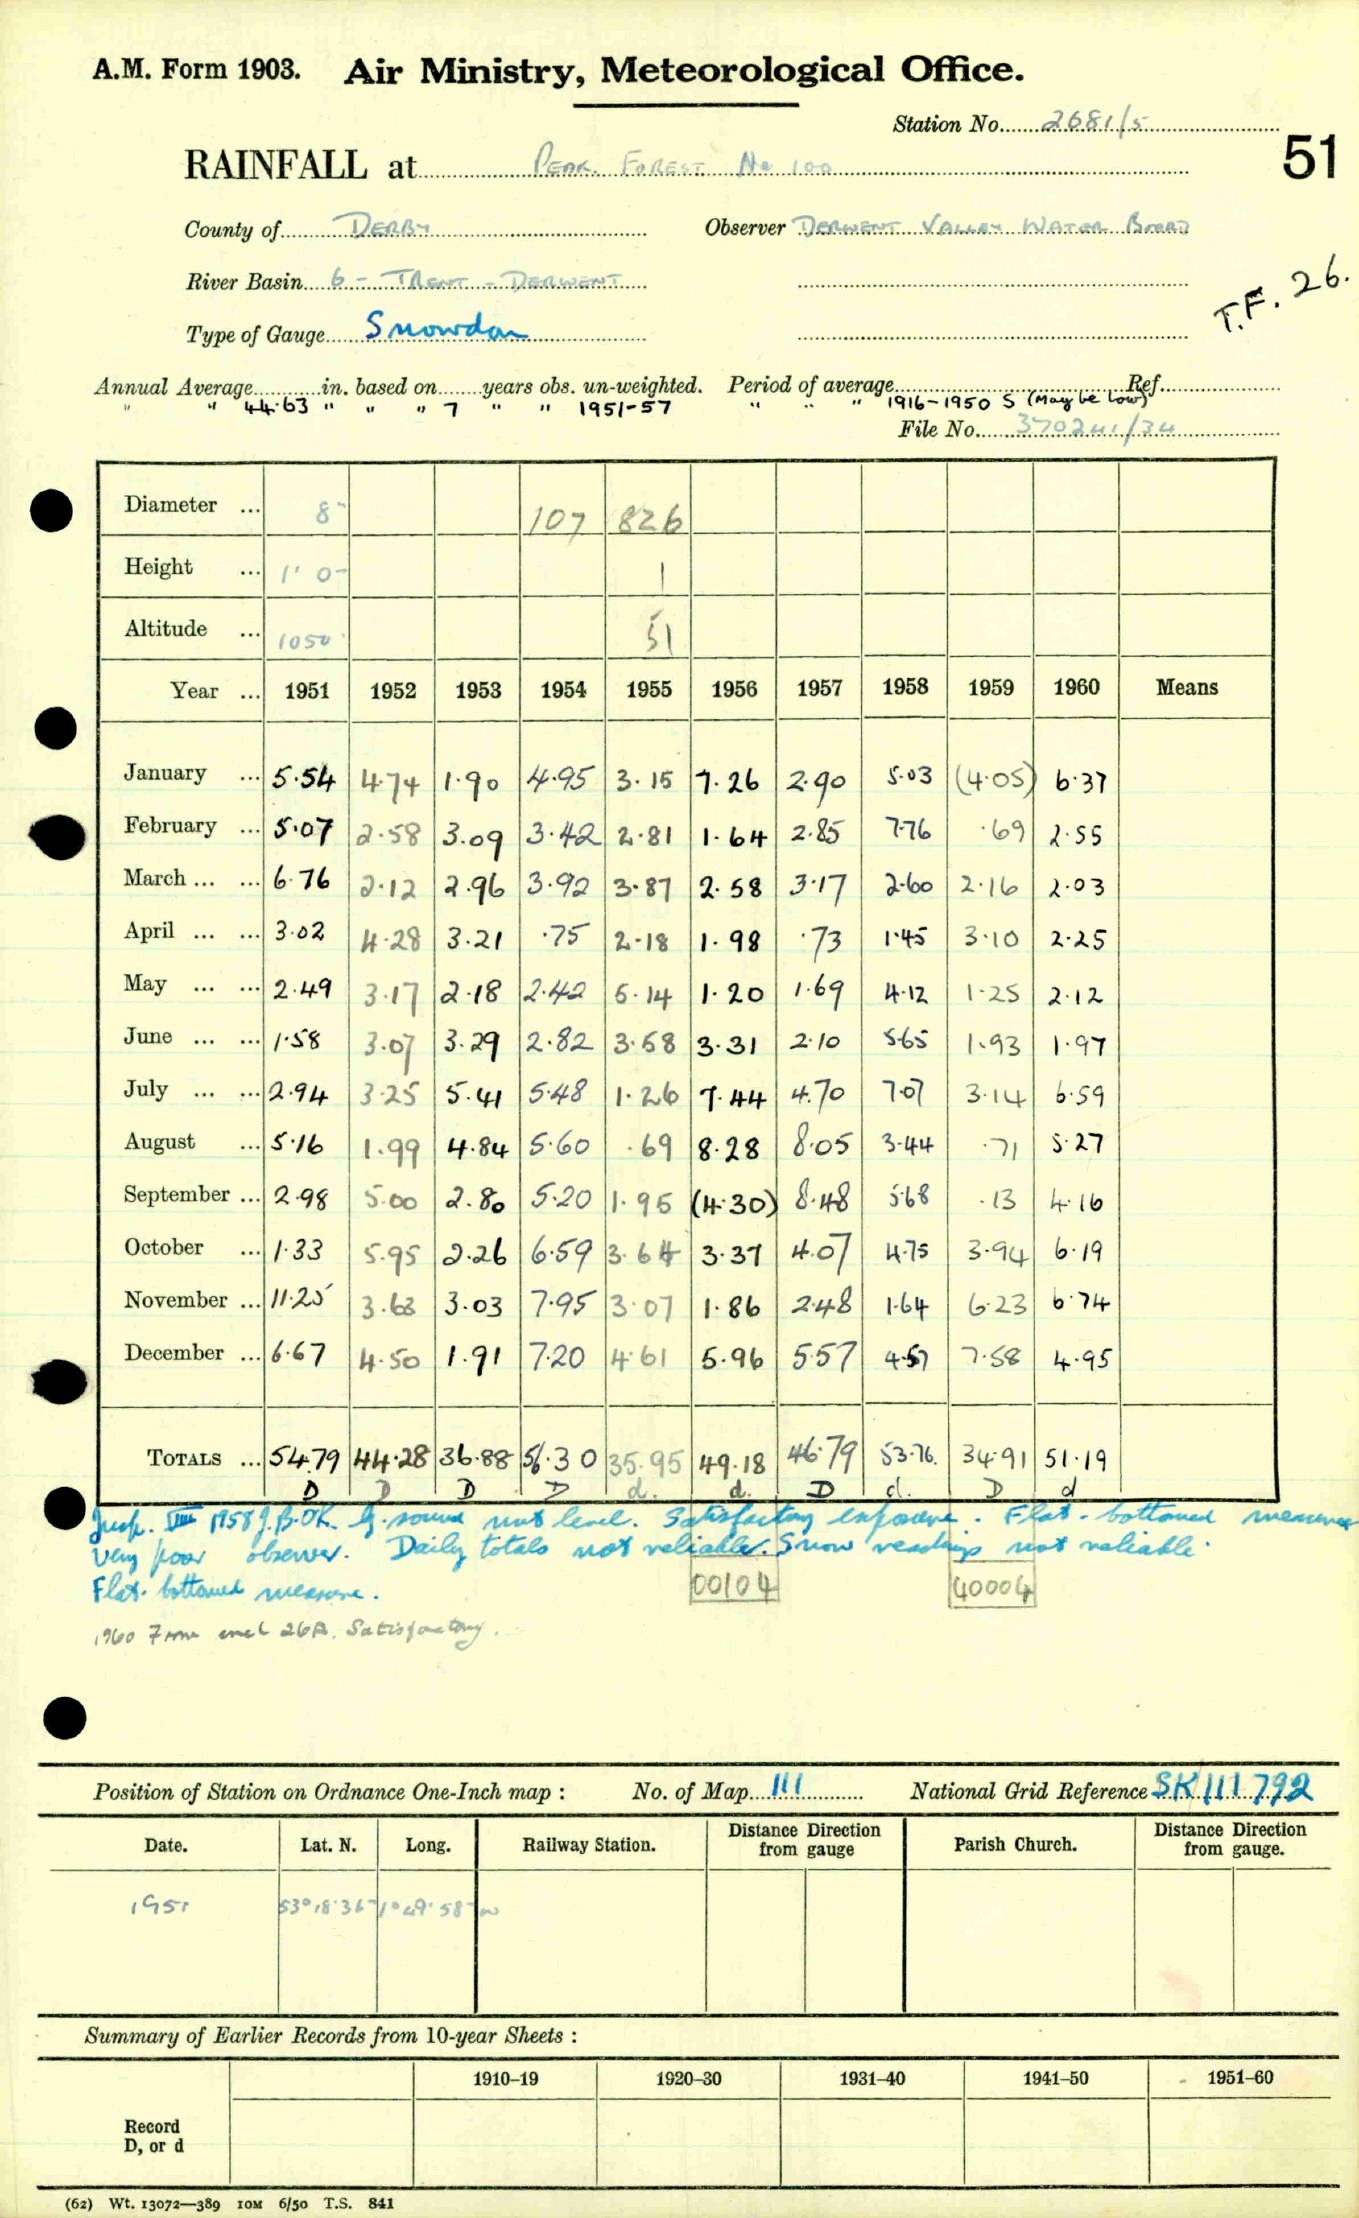 A.M. Form 1903. Air Ministry, Meteorological Office.
Station No. 2681/5
51
RAINFALL at PEAK FOREST No 100
County of DERBY Observer DERWENT VALLEY WATER BOARD
River Basin 6 - TRENT - DERWENT
T.F. 26.
Type of Gauge Snowdon
Annual Average in. based on years obs. un-weighted. Period of average Ref.
" " 44.63 " " " 7 " " 1951-57 " " " 1916-1950 S (May be low)
File No. 370241/34
Diameter ... 8" 107 826
Height ... 1' 0" 1
Altitude ... 1050 51
Year ... 1951 1952 1953 1954 1955 1956 1957 1958 1959 1960 Means
January ... 5.54 4.74 1.90 4.95 3.15 7.26 2.90 5.03 (4.05) 6.37
February ... 5.07 2.58 3.09 3.42 2.81 1.64 2.85 7.76 .69 2.55
March ... ... 6.76 2.12 2.96 3.92 3.87 2.58 3.17 2.60 2.16 2.03
April ... ... 3.02 4.28 3.21 .75 2.18 1.98 .73 1.45 3.10 2.25
May ... ... 2.49 3.17 2.18 2.42 5.14 1.20 1.69 4.12 1.25 2.12
June ... ... 1.58 3.07 3.29 2.82 3.58 3.31 2.10 5.65 1.93 1.97
July ... ... 2.94 3.25 5.41 5.48 1.26 7.44 4.70 7.07 3.14 6.59
August ... 5.16 1.99 4.84 5.60 .69 8.28 8.05 3.44 .71 5.27
September ... 2.98 5.00 2.80 5.20 1.95 (4.30) 8.48 5.68 .13 4.16
October ... 1.33 5.95 2.26 6.59 3.64 3.37 4.07 4.75 3.94 6.19
November ... 11.25 3.63 3.03 7.95 3.07 1.86 2.48 1.64 6.23 6.74
December ... 6.67 4.50 1.91 7.20 4.61 5.96 5.57 4.57 7.58 4.95
TOTALS ... 54.79 44.28 36.88 56.30 35.95 49.18 46.79 53.76. 34.91 51.19
D D D D d. d. D d. D d
Insp. VIII 1958 J.B. OK. G. sound not level. Satisfactory exposure. Flat-bottomed measure
Very poor observer. Daily totals not reliable. Snow readings not reliable.
Flat-bottomed measure. 00104 40004
1960 26A. Satisfactory.
Position of Station on Ordnance One-Inch map : No. of Map 111 National Grid Reference SK 111 792
Date. Lat. N. Long. Railway Station. Distance from Direction gauge Parish Church. Distance from Direction gauge.
1951 53° 18' 36" 1° 49' 58" W
Summary of Earlier Records from 10-year Sheets :
1910–19 1920–30 1931–40 1941–50 1951–60
Record
D, or d
(62) Wt. 13072—389 10M 6/50 T.S. 841